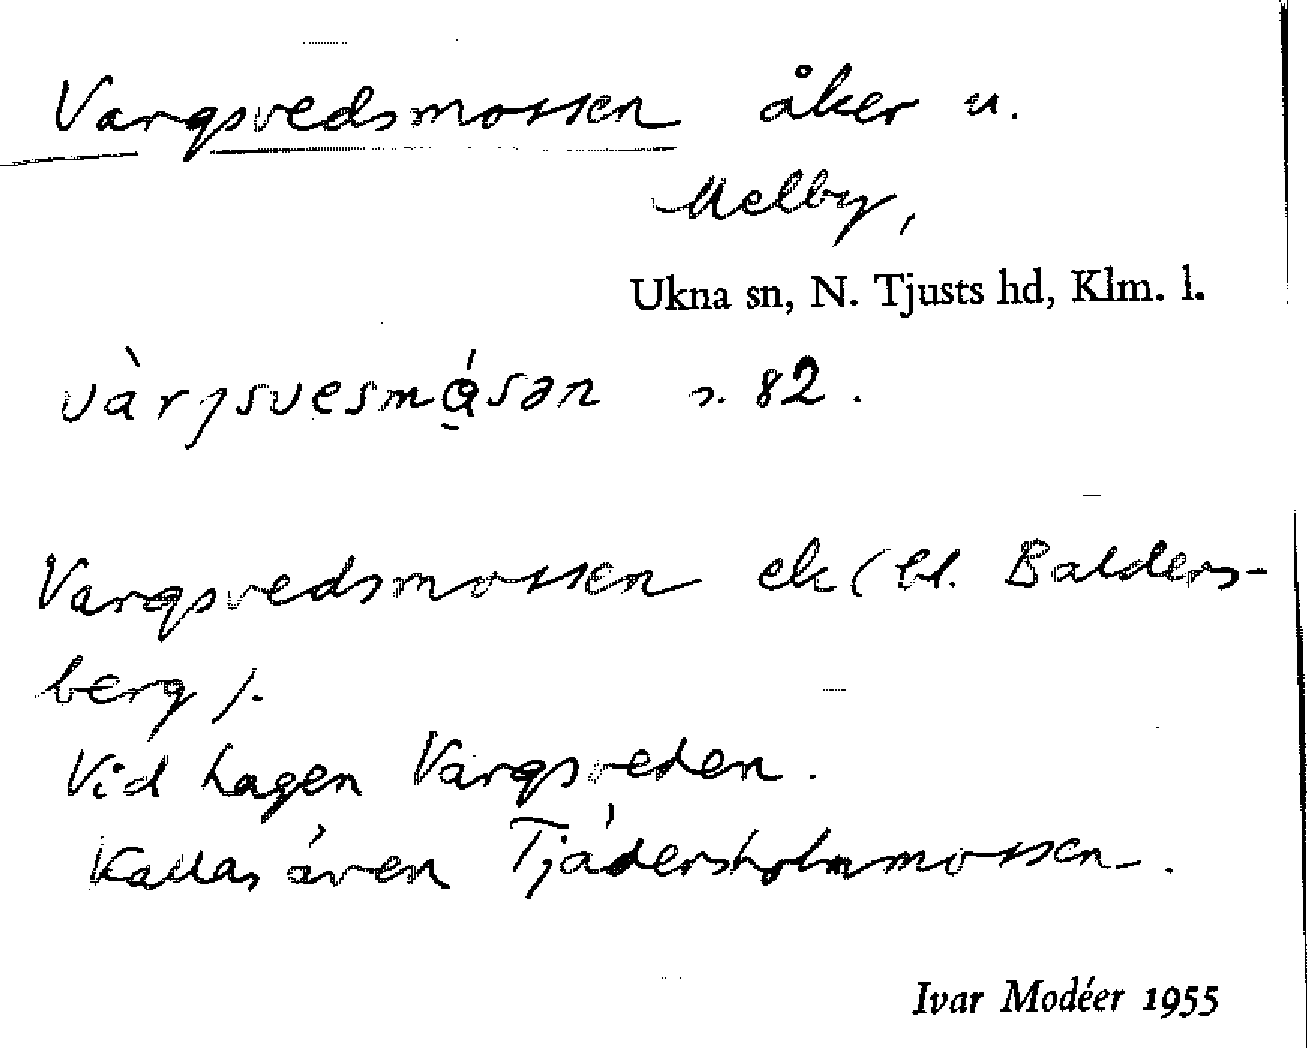 Vargsvedsmossen åker u.
Melby,
Ukna sn, N. Tjusts hd, Klm. l.
s. 82.
Vargsvedsmossen ek (bl. Balders-
berg).
Vid hagen Vargsveden.
Kallas även Tjädersholmmossen.
Ivar Modéer 1955